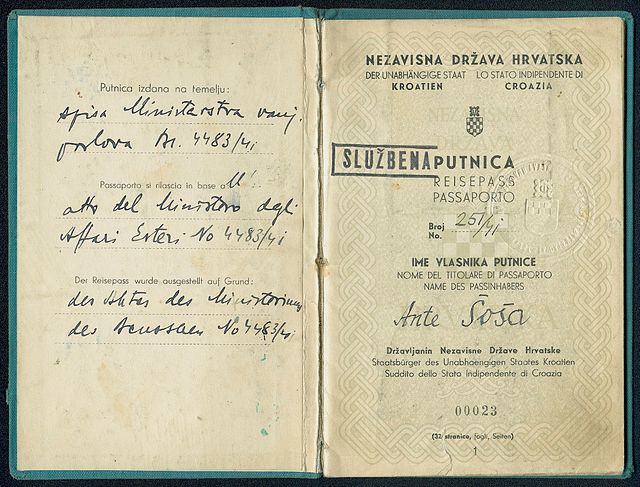 Putnica izdana na temelju:
spisa Ministarstva vanj.
poslova Br. 4483/41
Passaporto si rilascia in base a
atto del Ministero degli
Affari Esteri No 4483/41
Der Reisepass wurde ausgestellt auf Grund:
des Aktes des Ministeriums
des Äusseren No 4483/41
NEZAVISNA DRŽAVA HRVATSKA
DER UNABHÄNGIGE STAAT LO STATO INDIPENDENTE DI
KROATIEN CROAZIA
SLUŽBENA PUTNICA
REISEPASS
PASSAPORTO
Broj
No. 251/41
IME VLASNIKA PUTNICE
NOME DEL TITOLARE DI PASSAPORTO
NAME DES PASSINHABERS
Ante Šoša
Državljanin Nezavisne Države Hrvatske
Staatsbürger des Unabhaengigen Staates Kroatien
Suddito dello Stato Indipendente di Croazia
00023
(32 stranice, fogli, Seiten)
1